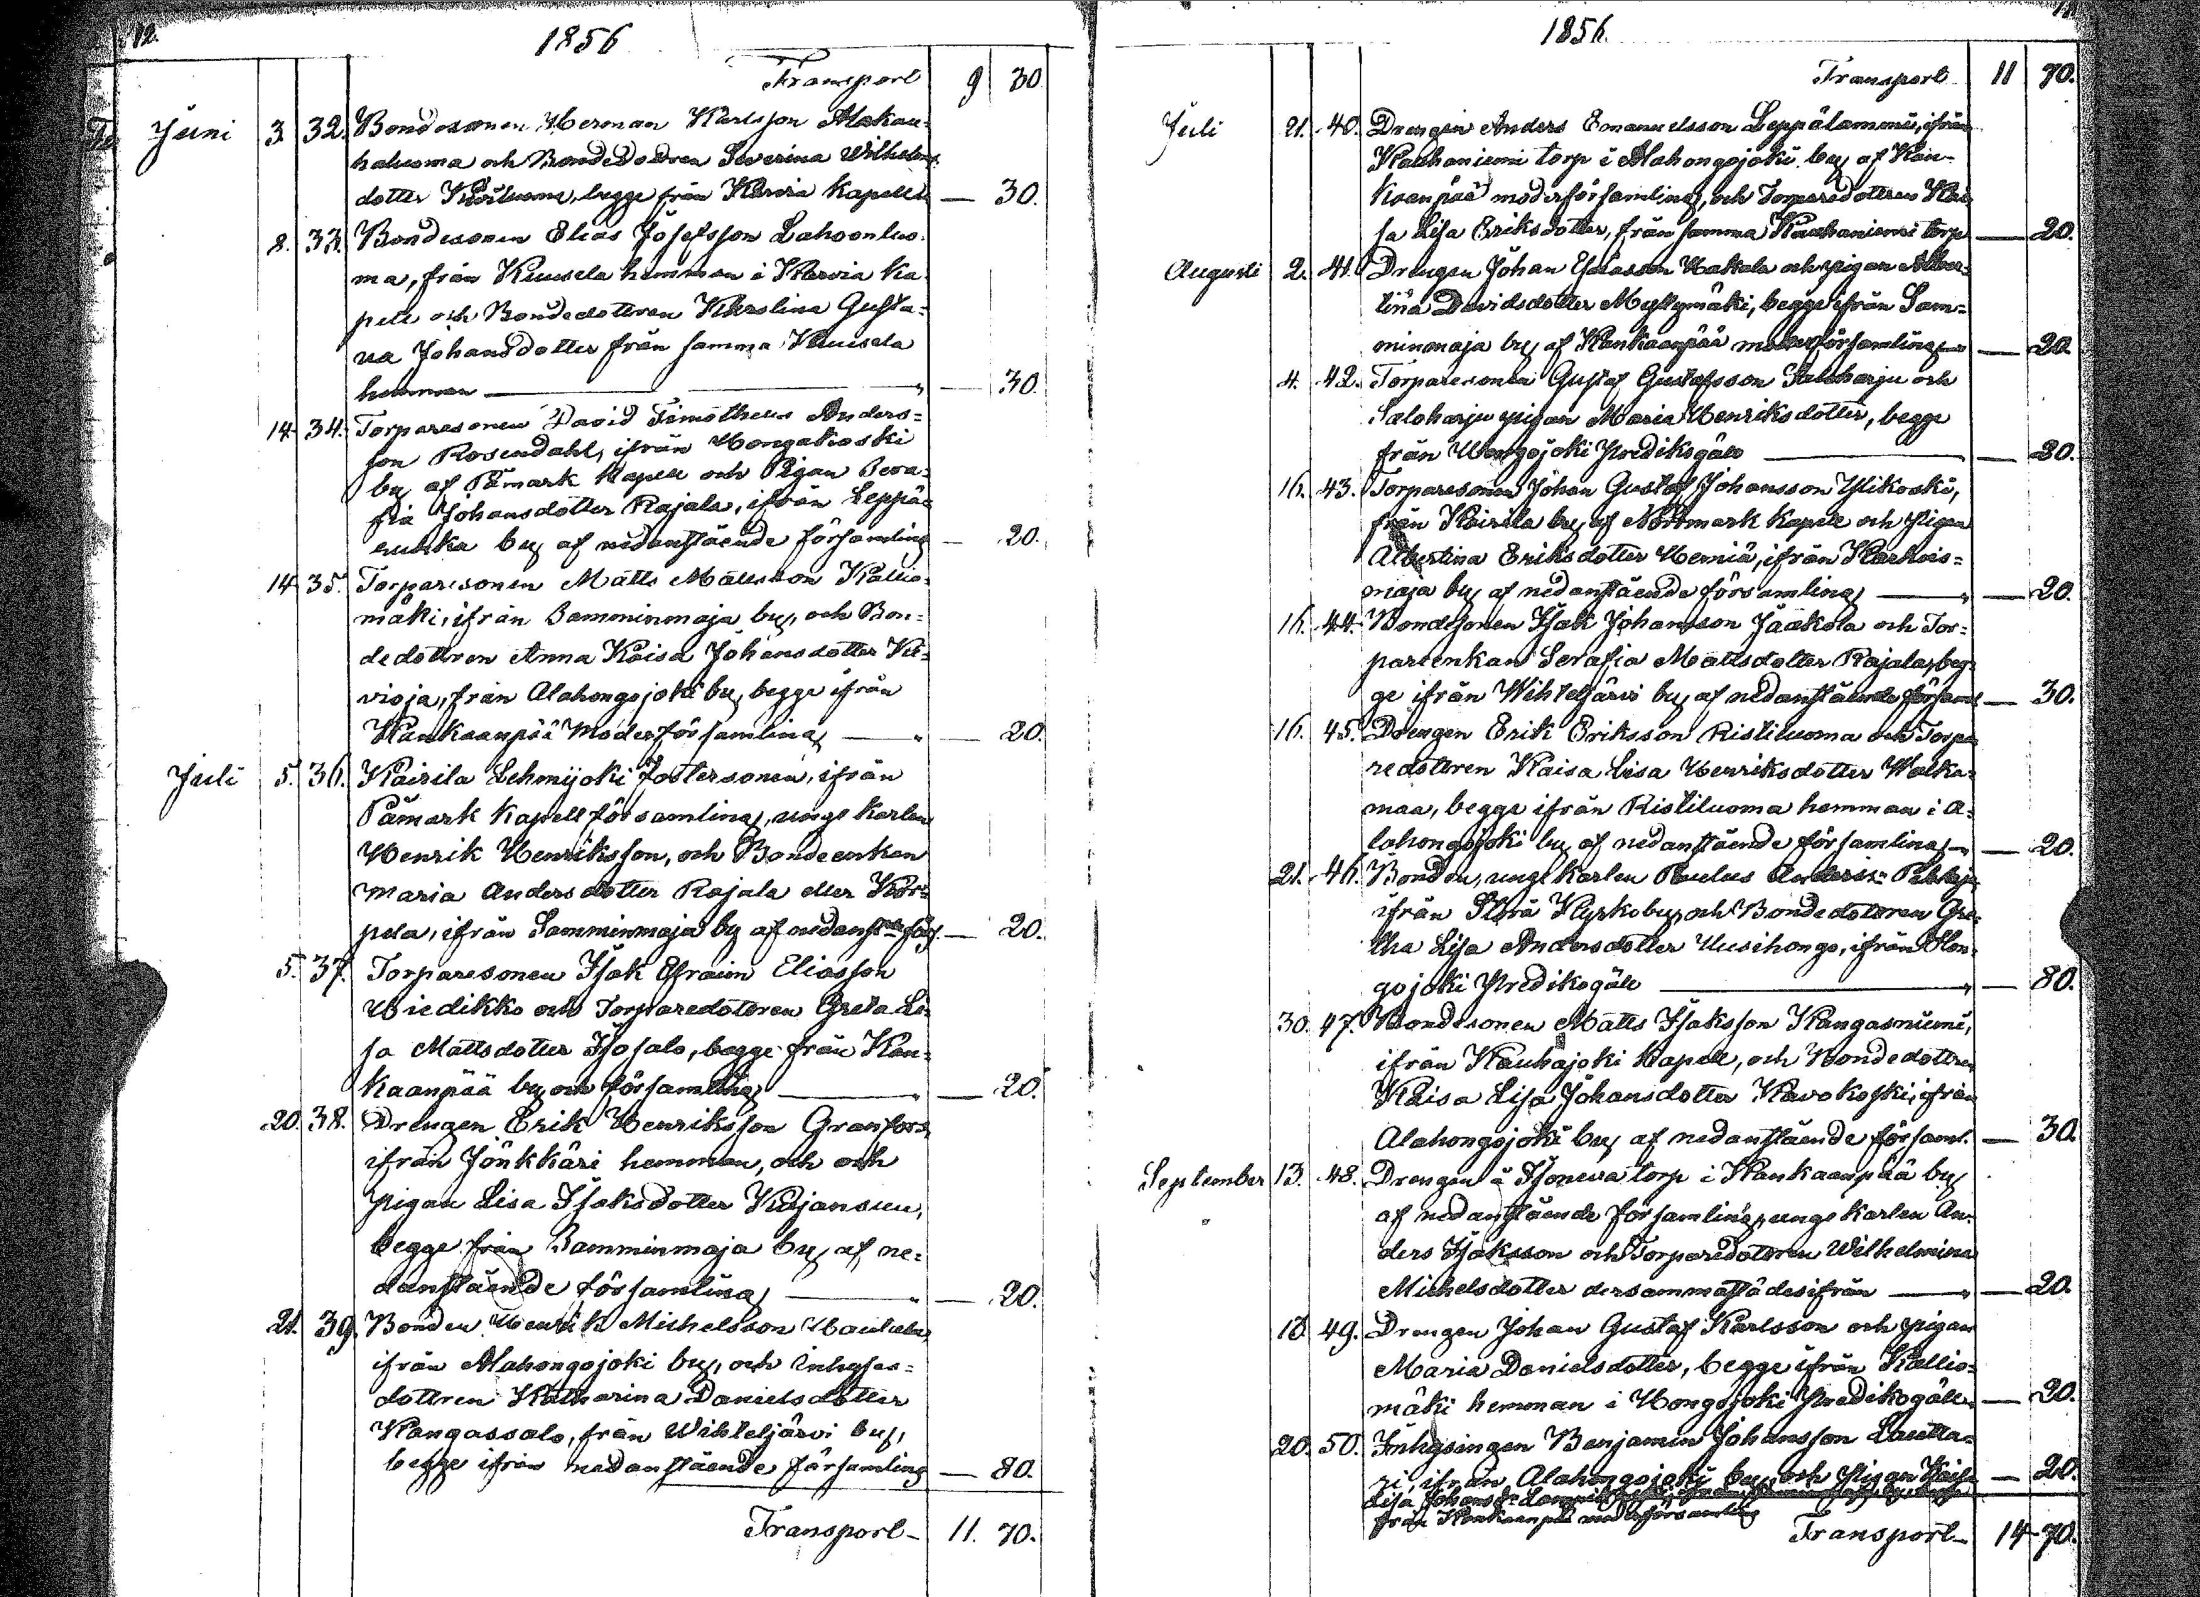 12.
1856
Transport 9 30
Juni 3. 32. Bondesonen Herman Karlsson Alakau-
haluoma och Bondedodren Severina Wilhelms-
dotter begge från Karvia Kapell — 30.
8. 33. Bondesonen Elias Josefsson Lahoonluo-
ma, från Kuusela hemman i Karvia Ka-
pell och Bondedottren Karolina Gusta-
va Johansdotter från samma Kuusela
hemman — " — 30.
14. 34. Torparesonen David Timotheus Anders-
son Rosendahl, ifrån Hongakoski
by af Påmark Kapell och Pigan Sera-
fia Johansdotter Rajala, ifrån Leppä-
ruhka by af nedanstående församling — 20.
14. 35. Torparesonen Matts Mattsson Kallio-
mäki, ifrån Samminmaja by, och Bon-
dedottren Anna Kaisa Johansdotter Ki-
vioja, från Alahongojoki by, begge ifrån
Kankaanpää Moderförsamling — " — 20.
Juli 5. 36. Kairila Lehmijoki fostersonen, ifrån
Påmark Kapellförsamling, unge karlen
Henrik Henriksson, och Bondeenkan
Maria Andersdotter Rajala eller Kor-
pela, ifrån Samminmaja by af nedanst:de förs. — 20.
5. 37. Torparesonen Isak Efraim Eliasson
Hiedikko och Torparedottren Greta Li-
sa Mattsdotter Isosalo, begge från Kan-
kaanpää by och församling — " — 20.
20. 38. Drengen Erik Henriksson Granfors,
ifrån Jönkkäri hemman, och och
pigan Lisa Isaksdotter Kajansuu,
begge från Samminmaja by af ne-
danstående församling — " — 20.
21. 39. Bonden Henrik Michelsson
ifrån Alahongojoki by, och inhyses-
dottren Katharina Danielsdotter
Kangassalo, från Wihteljärvi by,
begge ifrån nedanstående församling — 80.
Transport 11. 70.
1856.
Transport 11 70.
Juli 21. 40. Drengen Anders Emanuelsson Leppälammi, ifrån
Kauhaniemi torp i Alahongojoki by af Kan-
kaanpää moderförsamling, och Torparedottren Kai-
sa Lisa Eriksdotter, från samma Kauhaniemi torp — 20.
Augusti 2. 41. Drengen Johan Esaiasson Hakala och pigan Alber-
tina Davidsdotter Myllymäki, begge ifrån Sam-
minmaja by af Kankaanpää moderförsamling — 20.
4. 42. Torparesonen Gustaf Gustafsson Saloharju och
Saloharju pigan Maria Henriksdotter, begge
från Hongojoki Predikogäll — 20.
16. 43. Torparesonen Johan Gustaf Johansson Ylikoski,
från Kairila by af Norrmark Kapell och Pigan
Albertina Eriksdotter Hemiä, ifrån Karhois-
maja by af nedanstående församling — " — 20.
16. 44. Bondesonen Isak Johansson Jaakola och Tor-
pareenkan Serafia Mattsdotter Rajala, beg-
ge ifrån Wihteljärvi by af nedanstående församl — 30.
16. 45. Drengen Erik Eriksson Ristiluoma och Torpa-
redottren Kaisa Lisa Henriksdotter Walka-
maa, begge ifrån Ristiluoma hemman i A-
lahongojoki by af nedanstående församling — 20.
21. 46. Bonden, unge karlen Paulus Anderss:
ifrån Storå Kyrkoby, och Bondedottren Gre-
tha Lisa Andersdotter Uusihongo, ifrån Hon-
gojoki Predikogäll — " — 80.
30. 47. Bondesonen Matts Isaksson Kangasniemi,
ifrån Kauhajoki Kapell, och Bondedottren
Kaisa Lisa Johansdotter Ravokoski, ifrån
Alahongojoki by af nedanstående församl. — 30.
September 13. 48. Drengen å Isoneva torp i Kankaanpää by
af nedanstående församling, unge karlen An-
ders Isaksson och Torparedottren Wilhelmina
Michelsdotter dersammastädesifrån — " — 20.
18. 49. Drengen Johan Gustaf Karlsson och pigan
Maria Danielsdotter, begge ifrån Kallio-
mäki hemman i Hongojoki Predikogäll — 20.
20. 50. Inhysingen Benjamin Johansson Lautta-
ri, ifrån Alahongojoki by, och Pigan Kaisa — 20.
Lisa Johansd:r
från Kankaanpää moderförsamling
Transport 14 70.